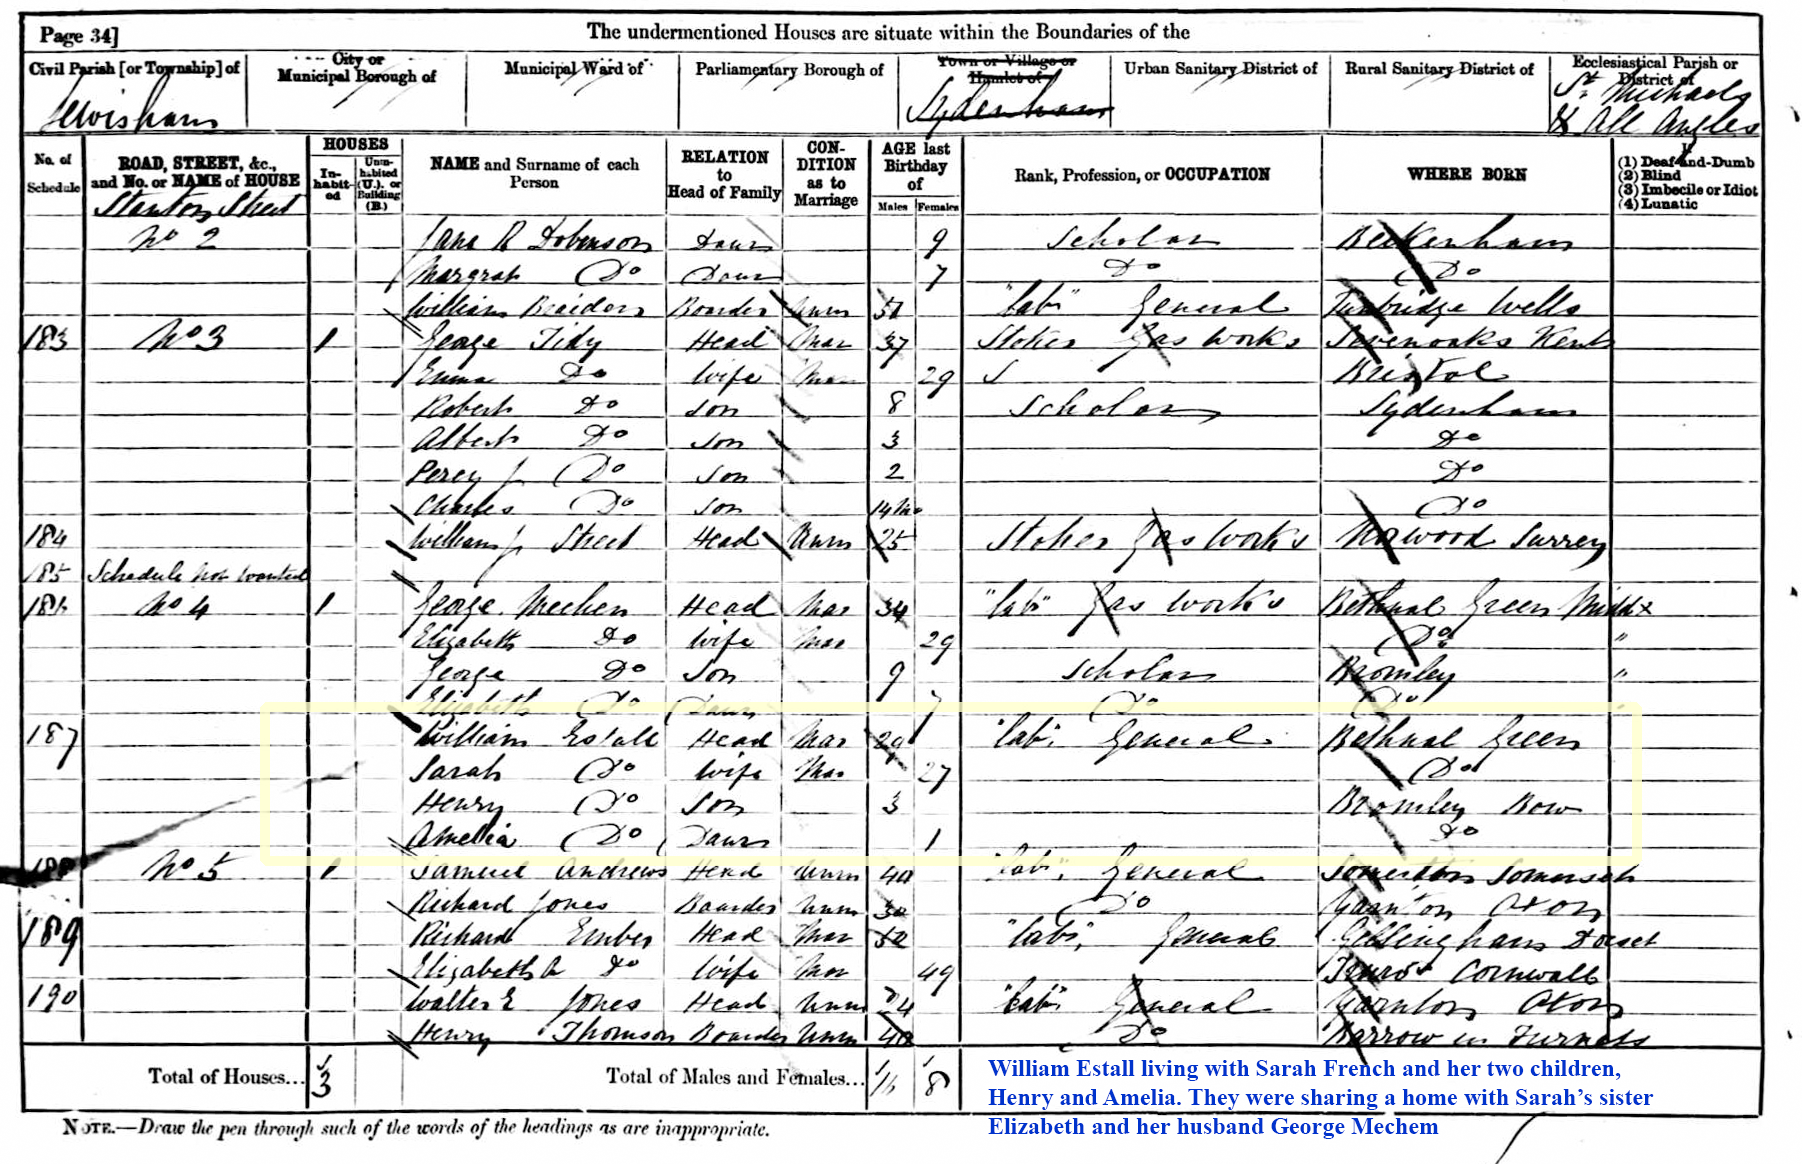 Page 34]
The undermentioned Houses are situate within the Boundaries of the
Civil Parish [or Township] of
City or Municipal Borough of
Municipal Ward of
Parliamentary Borough of
Town or Village or Hamlet of
Urban Sanitary District of
Rural Sanitary District of
Ecclesiastical Parish or District of
Lewisham
Sydenham
St. Michaels & All Angles
No. of Schedule
ROAD, STREET, &c., and No. or NAME of HOUSE
HOUSES
In-habit-ed
Unin-habited (U.), or Building (B.)
NAME and Surname of each Person
RELATION to Head of Family
CON-DITION as to Marriage
AGE last Birthday of
Males
Females
Rank, Profession, or OCCUPATION
WHERE BORN
(1) Deaf-and-Dumb
(2) Blind
(3) Imbecile or Idiot
(4) Lunatic
Stanton Street
No 2 Jane R Dobinson Daur 9 Scholar Beckenham
Margrat Do Daur 7 Do Do
William Boarder Unm "Lab" General Tunbridge Wells
183 No 3 1 George Tidy Head Mar 37 Stoker Gas Works Sevenoaks Kent
Emma Do Wife Mar 29 Bristol
Robert Do Son 8 Scholar Sydenham
Albert Do Son 3 Do
Percy J Do Son 2 Do
Charles Do Son 14 Mo Do
184 William J Street Head Unm 25 Stoker Gas Works Norwood Surrey
185 Schedule not wanted
186 No 4 1 George Mechem Head Mar 34 "Lab" Gas Works Bethnal Green Middx
Elizabeth Do Wife Mar 29 Do "
George Do Son 9 Scholar Bromley "
Elizabeth Do Daur 7 Do Do
187 William Estall Head Mar 29 "Lab" General Bethnal Green
Sarah Do Wife Mar 27 Do
Henry Do Son 3 Bromley Bow
Amelia Do Daur 1 Do
188 No 5 1 Samuel Andrews Head Unm "Lab" General Somerton Somerset
Richard Jones Boarder Unm Do Yarnton Oxon
189 Richard Ember Head Mar "Lab" General Gillingham Dorset
Elizabeth Do Wife Mar 49 Truro Cornwall
190 Walter E Jones Head Unm 24 "Lab" General Yarnton Oxon
Henry Thomson Boarder Unm Do Barrow in Furness
Total of Houses... 3
Total of Males and Females... 16 8
William Estall living with Sarah French and her two children,
Henry and Amelia. They were sharing a home with Sarah's sister
Elizabeth and her husband George Mechem
NOTE.—Draw the pen through such of the words of the headings as are inappropriate.